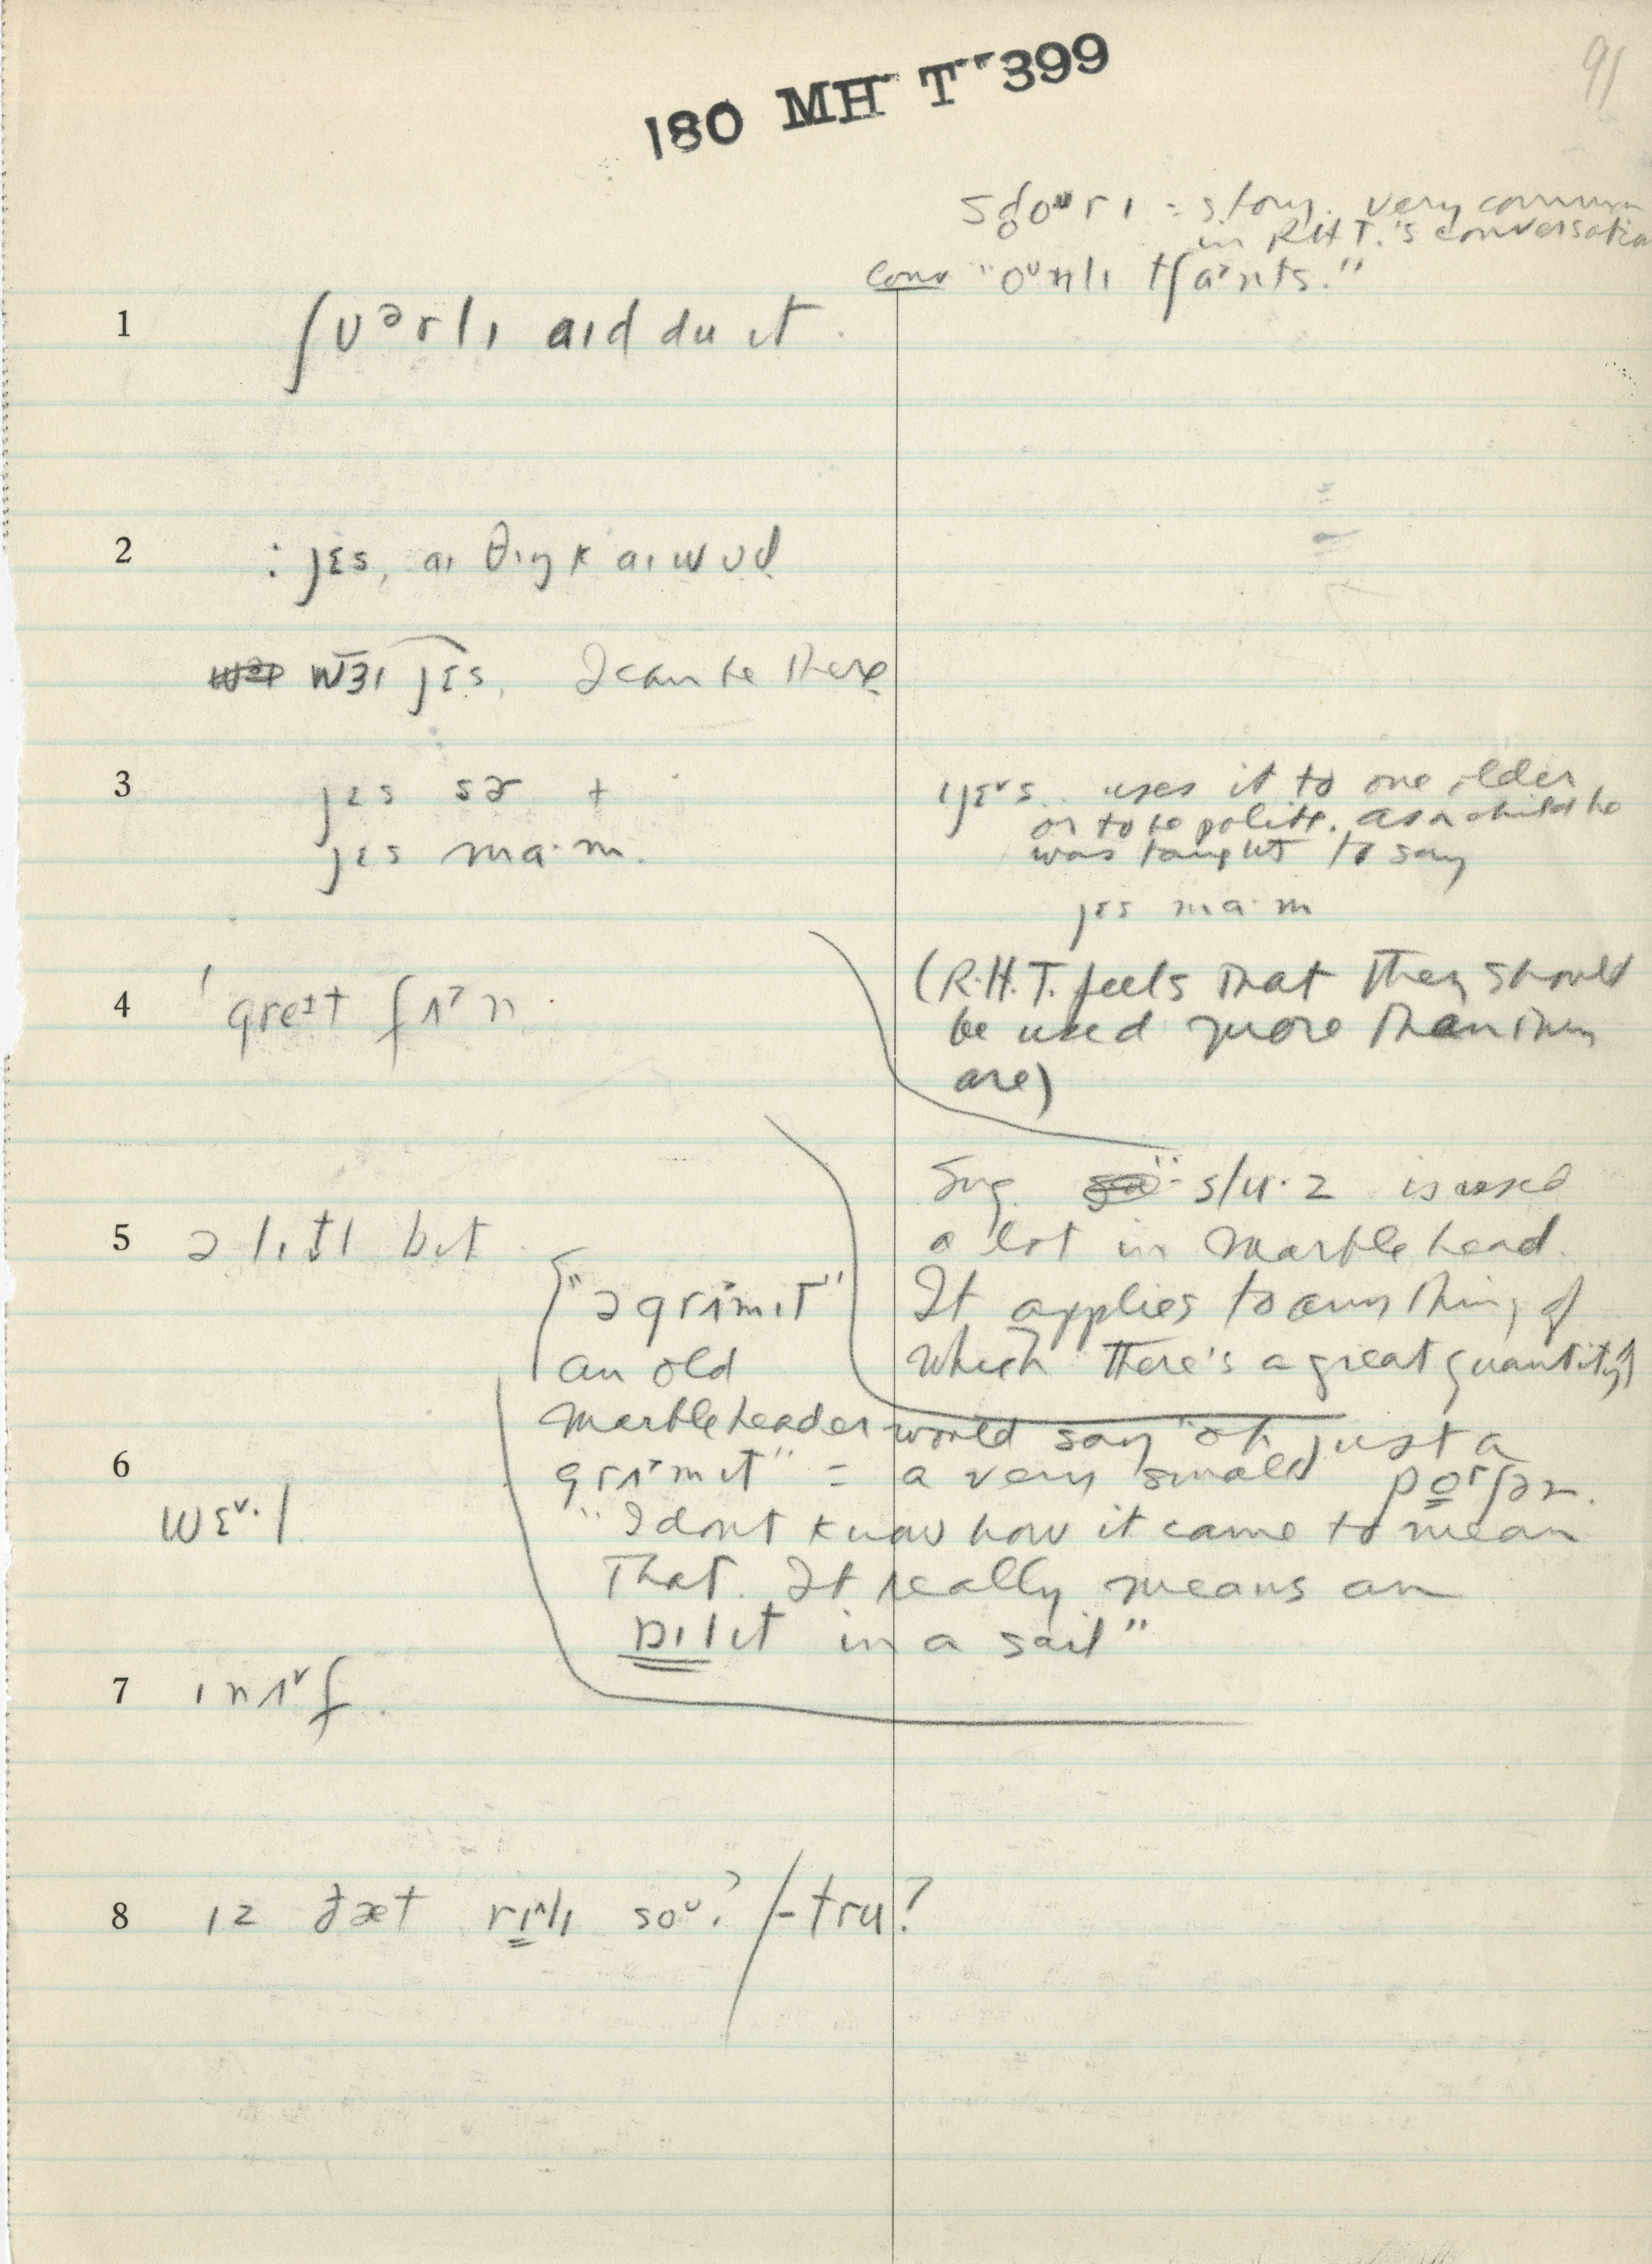 180 MH T 399
91
sd̥oᵘrɪ = story. very common
in R.H.T.'s conversation
conv "oᵘnlɪ tʃaˀnts."
1 ʃʊᵊrlɪ aɪd du ɪt.
2 : jɛs, aɪ θɪŋk aɪ wʊd
wɜɪ jɛs, I can be there
3 jɛs sɚ +
jɛs ma·m.
ɪjɛᵛs uses it to one older
or to be polite. As a child he
was taught to say
jɛs ma·m
4 'greɪt fʌˀn.
(R.H.T. feels that they should
be used more than they
are)
5 ə lɪt̬l bɪt
Sug. "slu·z is used
a lot in Marblehead.
It applies to anything of
which there's a great quantity)
["ə grʌˀmɪt"
an old
Marbleheader would say "oh, just a
6 grʌˀmɪt" = a very small porʃən.
wɛᵛ·l
"I dont know how it came to mean
that. It really means an
ɒɪlɪt in a sail"
7 ɪnʌᵛf.
8 ɪz ðæt rɪˆlɪ soᵘ? / - tru?